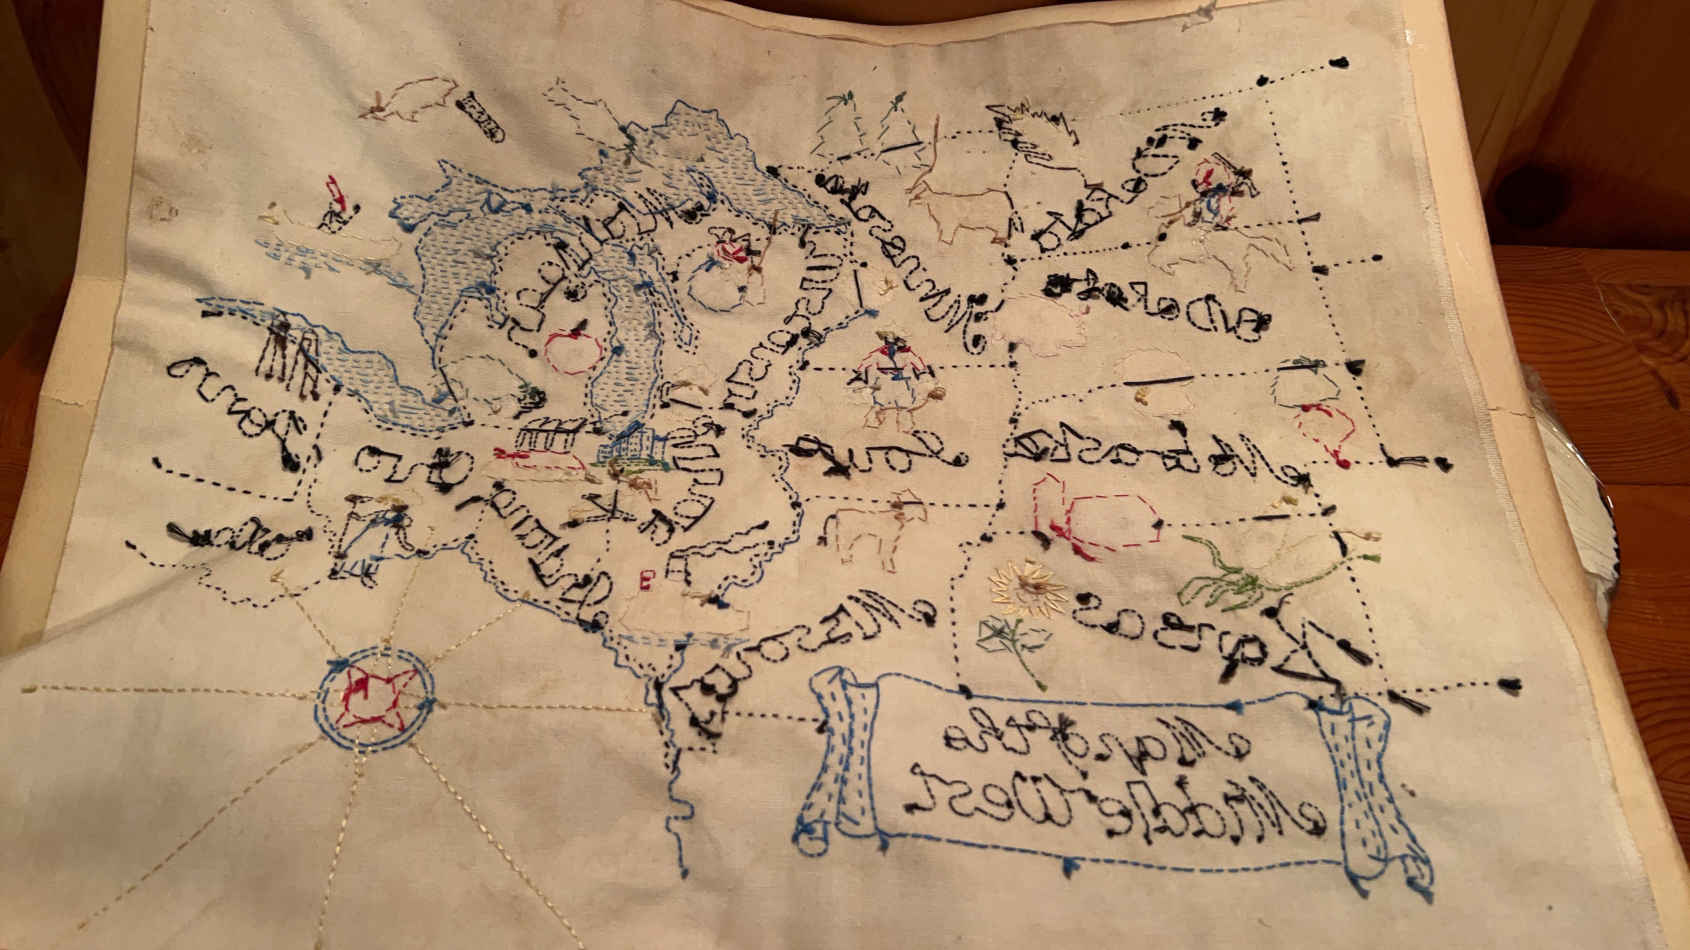 No Dakota
Minnesota
Michigan
So Dakota
Wisconsin
Penna
Nebraska
Iowa
Illinois
Indiana
Ohio
Kansas
Missouri
Map of the
Middle West